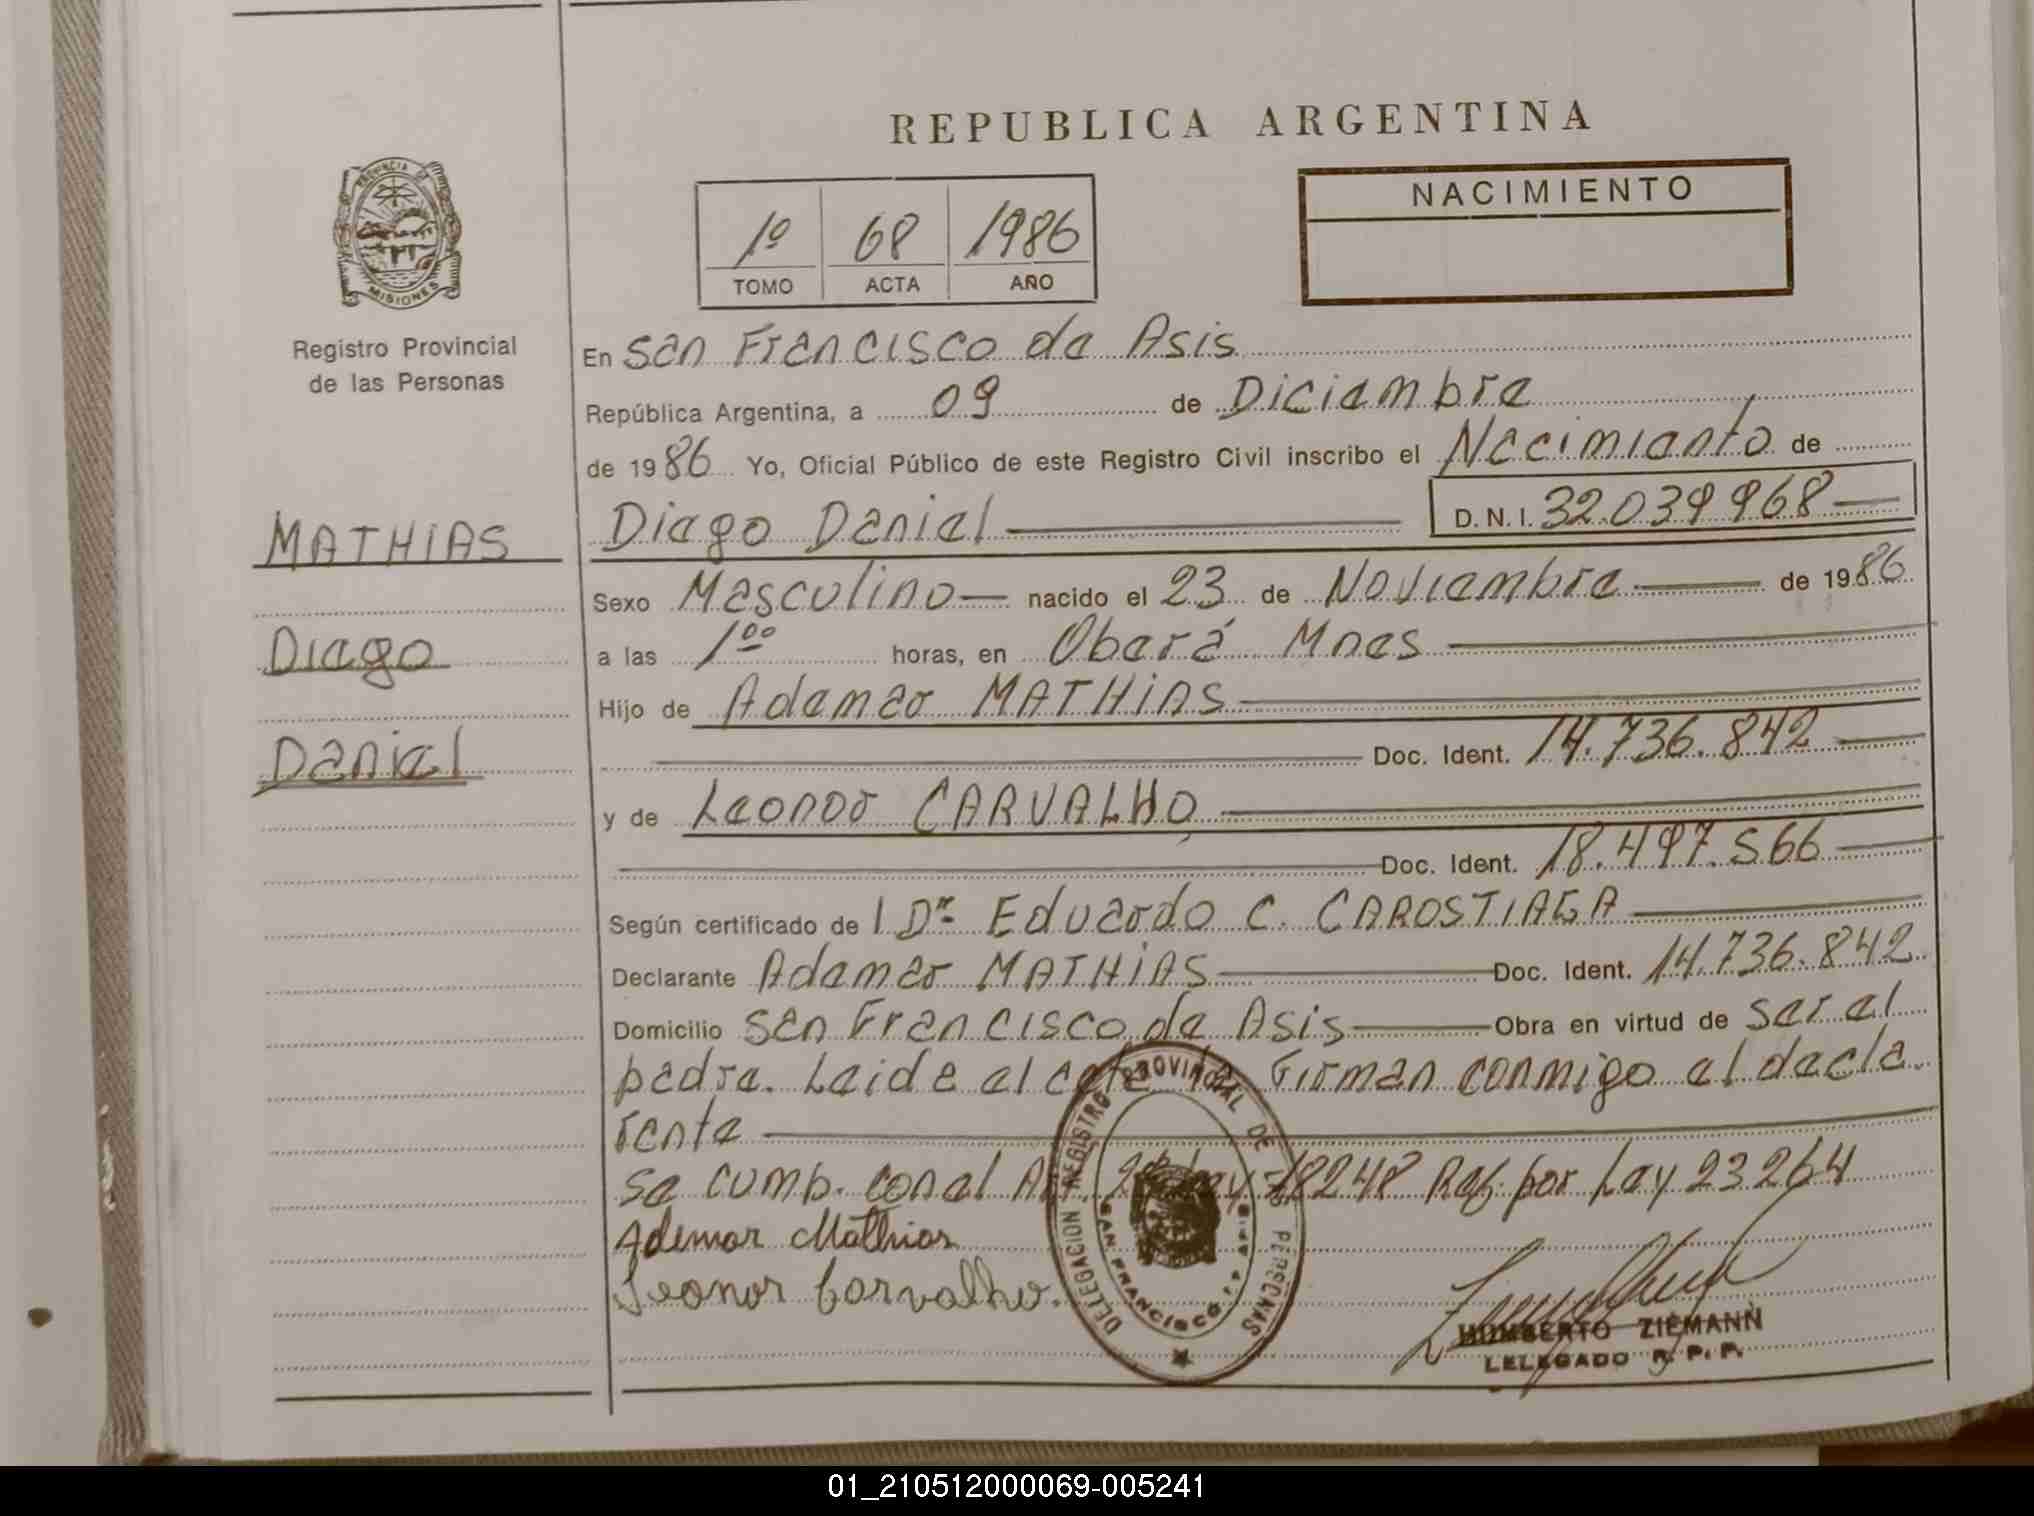 REPUBLICA ARGENTINA
PROVINCIA DE
MISIONES
Registro Provincial
de las Personas
NACIMIENTO
1º 68 1986
TOMO ACTA AÑO
En San Francisco de Asis
República Argentina, a 09 de Diciembre
de 1986 Yo, Oficial Público de este Registro Civil inscribo el Nacimiento de
MATHIAS
Diego
Daniel
Diego Daniel D.N.I. 32.039968
Sexo Masculino nacido el 23 de Noviembre de 1986
a las 1ºº horas, en Oberá Mnes
Hijo de Ademar MATHIAS
Doc. Ident. 14.736.842
y de Leonor CARVALHO
Doc. Ident. 18.497.566
Según certificado de l Dr Eduardo C. CAROSTIAGA
Declarante Ademar MATHIAS Doc. Ident. 14.736.842
Domicilio San Francisco de Asis Obra en virtud de ser el
padre. Leida el acta la Firman conmigo el decla
rente
Se cumb. con el 18248 Ref. por Ley 23264
Ademar Mathias
Leonor Carvalho.
DELEGACION REGISTRO PROVINCIAL DE LAS PERSONAS
SAN FRANCISCO DE ASIS
HUMBERTO ZIEMANN
DELEGADO R. P. P.
01_210512000069-005241